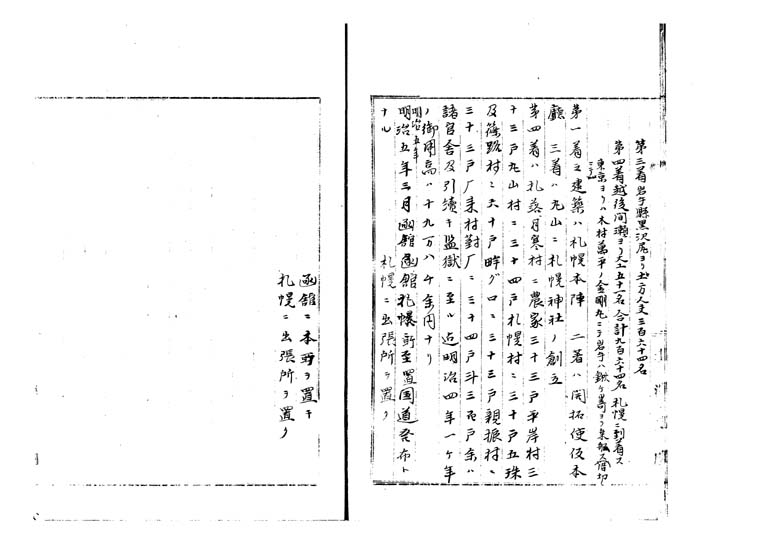 第三着岩手縣黒沢尻ヨリ土方人夫三百六十四名
第四着越後間瀬ヨリ大工五十一名合計九百六十四名札幌ニ到着ス
東京ヨリハ木村萬平ノ金剛丸ニテ岩手ハ鍬ケ嵜ヨリ乗組ス
第一着之建築ハ札幌本陣 二着ハ開拓使仮本
廳 三着ハ丸山ニ札幌神社ノ創立
第四着ハ札幌月寒村ニ農家三十三戸平岸村三
十三戸丸山村ニ三十四戸札幌村ニ三十戸五珠
及篠路村ニ六十戸
三十三戸
諸官舎及引續キ監獄ニ至ル迠明治四年一ケ年
ノ御用高ハ十九万八千余円ナリ
明治五年
明治五年三月函館函館札幌新至置国道発布ト
ナル 札幌ニ出張所ヲ置ク
函館ニ本町ヲ置キ
札幌ニ出張所ヲ置ク